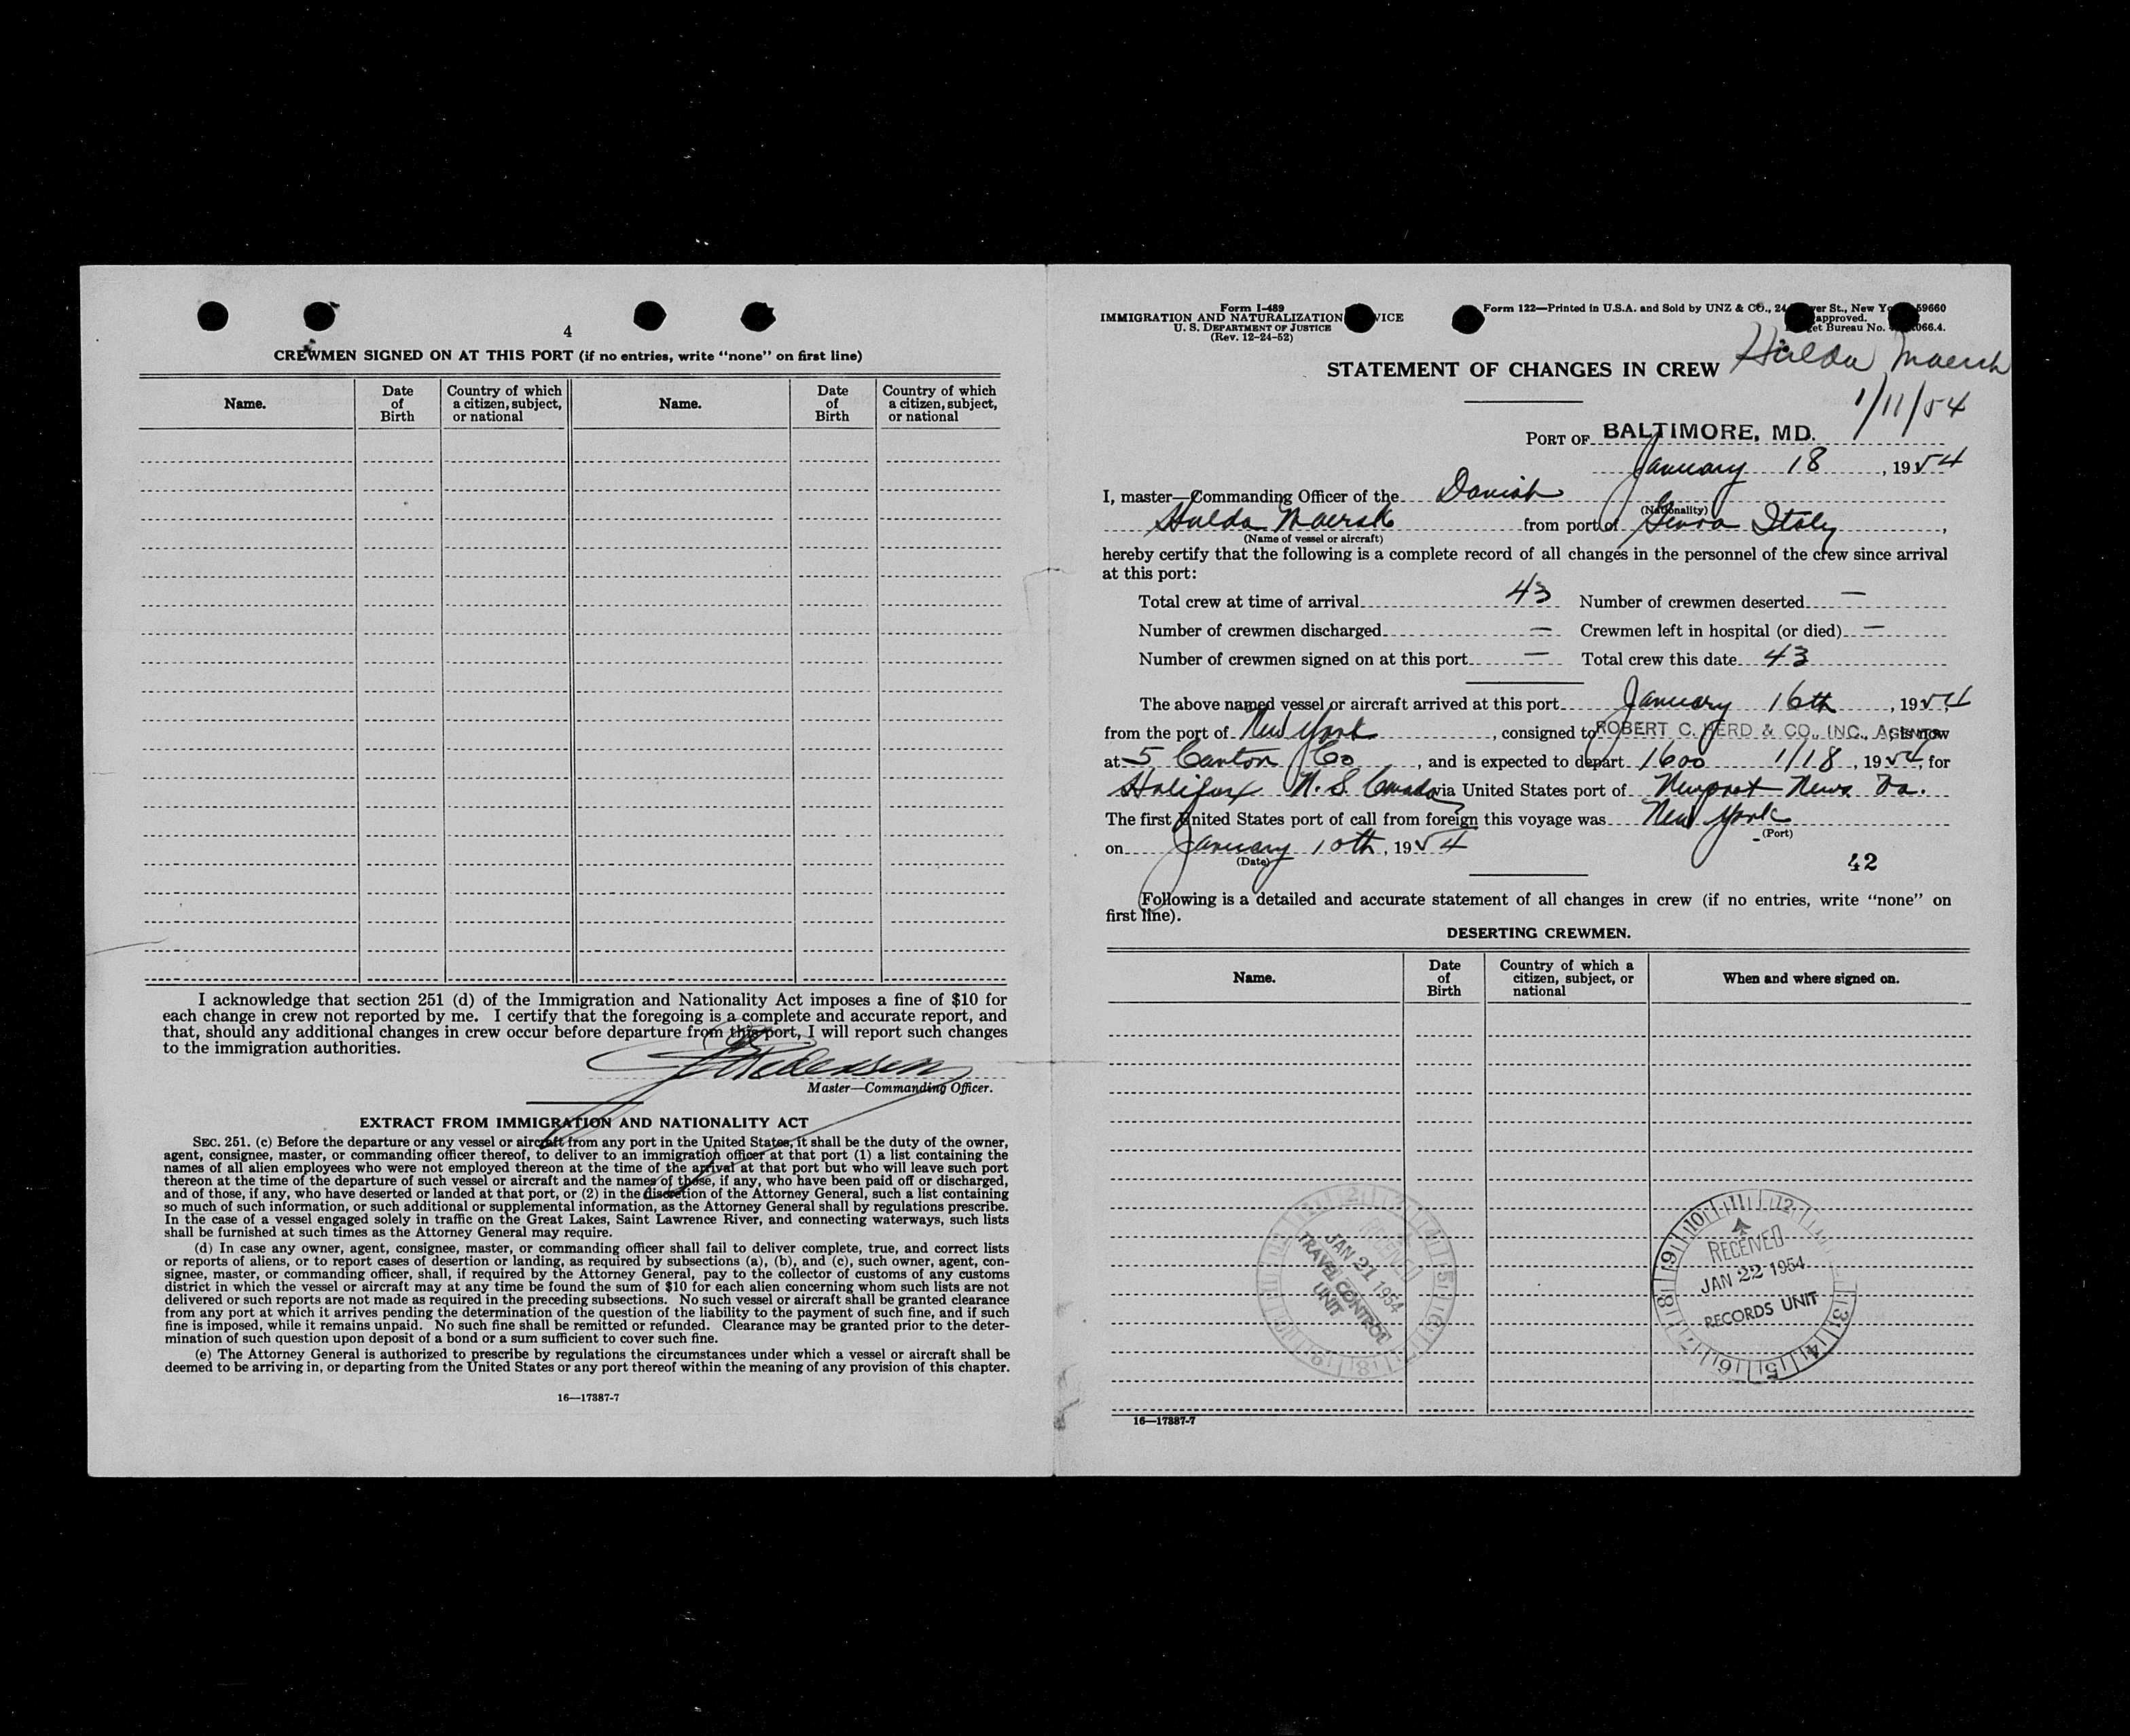 4
CREWMEN SIGNED ON AT THIS PORT (if no entries, write "none" on first line)
Name. Date of Birth Country of which a citizen, subject, or national Name. Date of Birth Country of which a citizen, subject, or national
I acknowledge that section 251 (d) of the Immigration and Nationality Act imposes a fine of $10 for
each change in crew not reported by me. I certify that the foregoing is a complete and accurate report, and
that, should any additional changes in crew occur before departure from this port, I will report such changes
to the immigration authorities.
Pedersen
Master—Commanding Officer.
EXTRACT FROM IMMIGRATION AND NATIONALITY ACT
SEC. 251. (c) Before the departure or any vessel or aircraft from any port in the United States, it shall be the duty of the owner,
agent, consignee, master, or commanding officer thereof, to deliver to an immigration officer at that port (1) a list containing the
names of all alien employees who were not employed thereon at the time of the arrival at that port but who will leave such port
thereon at the time of the departure of such vessel or aircraft and the names of those, if any, who have been paid off or discharged,
and of those, if any, who have deserted or landed at that port, or (2) in the discretion of the Attorney General, such a list containing
so much of such information, or such additional or supplemental information, as the Attorney General shall by regulations prescribe.
In the case of a vessel engaged solely in traffic on the Great Lakes, Saint Lawrence River, and connecting waterways, such lists
shall be furnished at such times as the Attorney General may require.
(d) In case any owner, agent, consignee, master, or commanding officer shall fail to deliver complete, true, and correct lists
or reports of aliens, or to report cases of desertion or landing, as required by subsections (a), (b), and (c), such owner, agent, con-
signee, master, or commanding officer, shall, if required by the Attorney General, pay to the collector of customs of any customs
district in which the vessel or aircraft may at any time be found the sum of $10 for each alien concerning whom such lists are not
delivered or such reports are not made as required in the preceding subsections. No such vessel or aircraft shall be granted clearance
from any port at which it arrives pending the determination of the question of the liability to the payment of such fine, and if such
fine is imposed, while it remains unpaid. No such fine shall be remitted or refunded. Clearance may be granted prior to the deter-
mination of such question upon deposit of a bond or a sum sufficient to cover such fine.
(e) The Attorney General is authorized to prescribe by regulations the circumstances under which a vessel or aircraft shall be
deemed to be arriving in, or departing from the United States or any port thereof within the meaning of any provision of this chapter.
16—17887-7
Form I-489
IMMIGRATION AND NATURALIZATION VICE
U. S. DEPARTMENT OF JUSTICE
(Rev. 12-24-52)
Form 122—Printed in U.S.A. and Sold by UNZ & CO., 24 er St., New Yo 59660
approved.
et Bureau No. 066.4.
STATEMENT OF CHANGES IN CREW Hulda Maersk
1/11/54
PORT OF BALTIMORE, MD.
January 18, 1954
I, master—Commanding Officer of the Danish
(Nationality)
Hulda Maersk from port of Genoa Italy,
(Name of vessel or aircraft)
hereby certify that the following is a complete record of all changes in the personnel of the crew since arrival
at this port:
Total crew at time of arrival 43 Number of crewmen deserted —
Number of crewmen discharged — Crewmen left in hospital (or died) —
Number of crewmen signed on at this port — Total crew this date 43
The above named vessel or aircraft arrived at this port January 16th, 1954
from the port of New York, consigned to ROBERT C. HERD & CO., INC., AGENTS is now
at 5 Canton Co, and is expected to depart 1600 1/18, 1954, for
Halifax N. S. Canada via United States port of Newport News Va.
The first United States port of call from foreign this voyage was New York
(Port)
on January 10th, 1954
(Date)
42
Following is a detailed and accurate statement of all changes in crew (if no entries, write "none" on
first line).
DESERTING CREWMEN.
Name. Date of Birth Country of which a citizen, subject, or national When and where signed on.
RECEIVED
JAN 21 1954
TRAVEL CONTROL
UNIT
11 12 3 4 5 6 7 8 9 10
RECEIVED
JAN 22 1954
RECORDS UNIT
16—17887-7